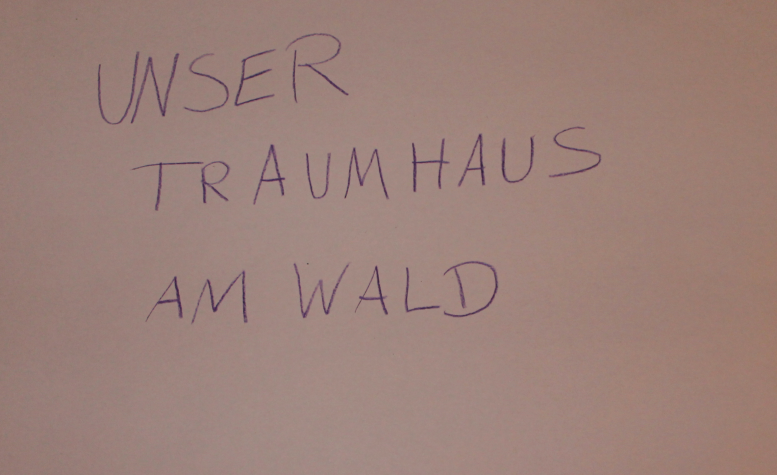 UNSER
TRAUMHAUS
AM WALD